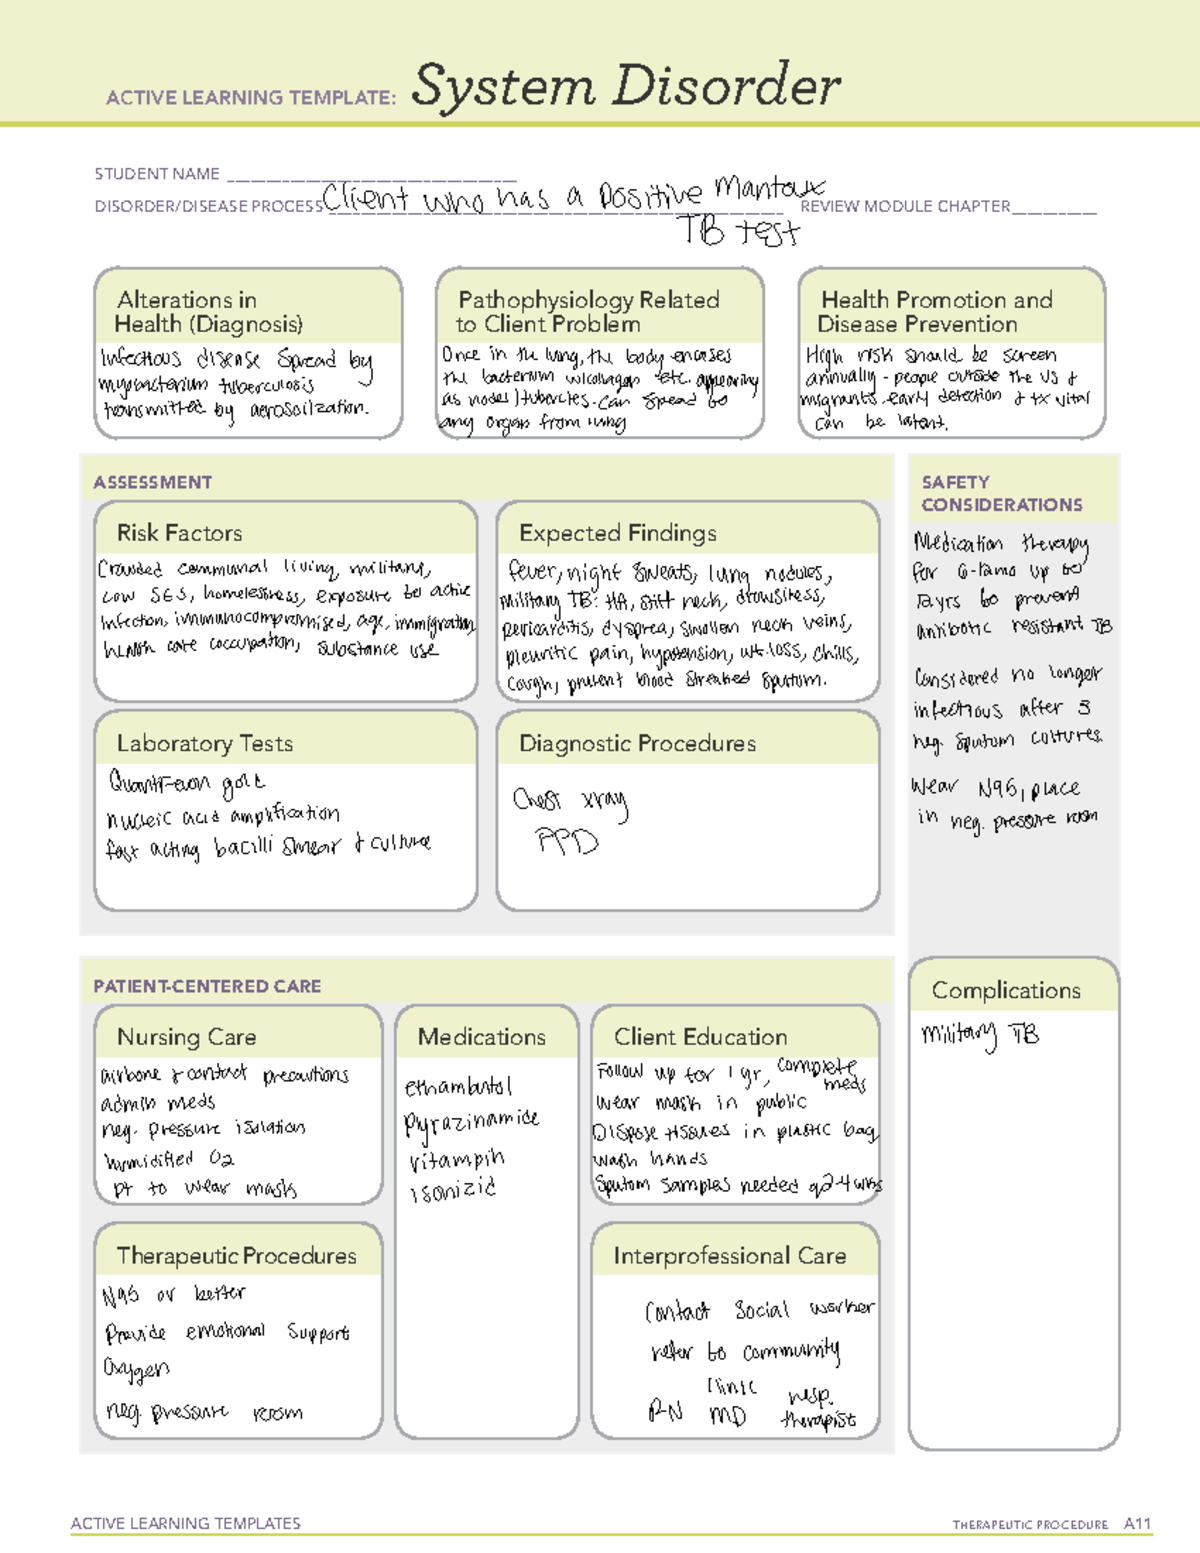 ACTIVE LEARNING TEMPLATE: System Disorder
STUDENT NAME
DISORDER/DISEASE PROCESS Client who has a positive Mantoux REVIEW MODULE CHAPTER
TB test
Alterations in
Health (Diagnosis)
Infectious disease spread by
mycobacterium tuberculosis
transmitted by aerosolization.
Pathophysiology Related
to Client Problem
Once in the lung, the body encases
the bacterium w/collagen etc. appearing
as nodes/tubercles. Can spread to
any organ from lung
Health Promotion and
Disease Prevention
High risk should be screen
annually - people outside the US &
migrants. early detection & tx vital
can be latent.
ASSESSMENT
Risk Factors
Crowded communal living, military,
low SES, homelessness, exposure to active
infection, immunocompromised, age, immigration,
health care occupation, substance use
Expected Findings
fever, night sweats, lung nodules,
military TB: HA, stiff neck, drowsiness,
pericarditis, dyspnea, swollen neck veins,
pleuritic pain, hypotension, wt. loss, chills,
cough, present blood streaked sputum.
Laboratory Tests
gold
nucleic acid amplification
fast acting bacilli smear & culture
Diagnostic Procedures
Chest xray
PPD
SAFETY
CONSIDERATIONS
Medication therapy
for up to
to prevent
antibiotic resistant TB
Considered no longer
infectious after 3
neg. sputum cultures.
Wear N95, place
in neg. pressure room
PATIENT-CENTERED CARE
Nursing Care
airbone & contact precautions
admin meds
neg. pressure isolation
humidified O2
pt to wear mask
Medications
ethambutol
pyrazinamide
isonizid
Client Education
Follow up for 1 yr, complete
meds
wear mask in public
Dispose tissues in plastic bag
wash hands
Sputum samples needed q2-4wks
Therapeutic Procedures
N95 or better
Provide emotional support
Oxygen
neg. pressure room
Interprofessional Care
Contact social worker
refer to community
clinic
RN MD resp.
therapist
Complications
military TB
ACTIVE LEARNING TEMPLATES
THERAPEUTIC PROCEDURE A11